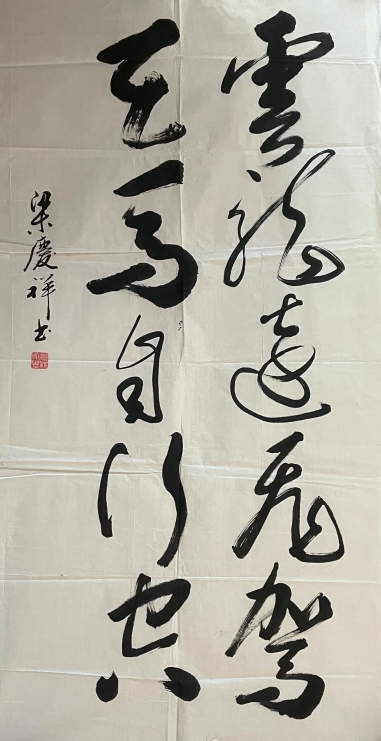 雲龍遠飛駕
天馬自行空
梁慶祥书